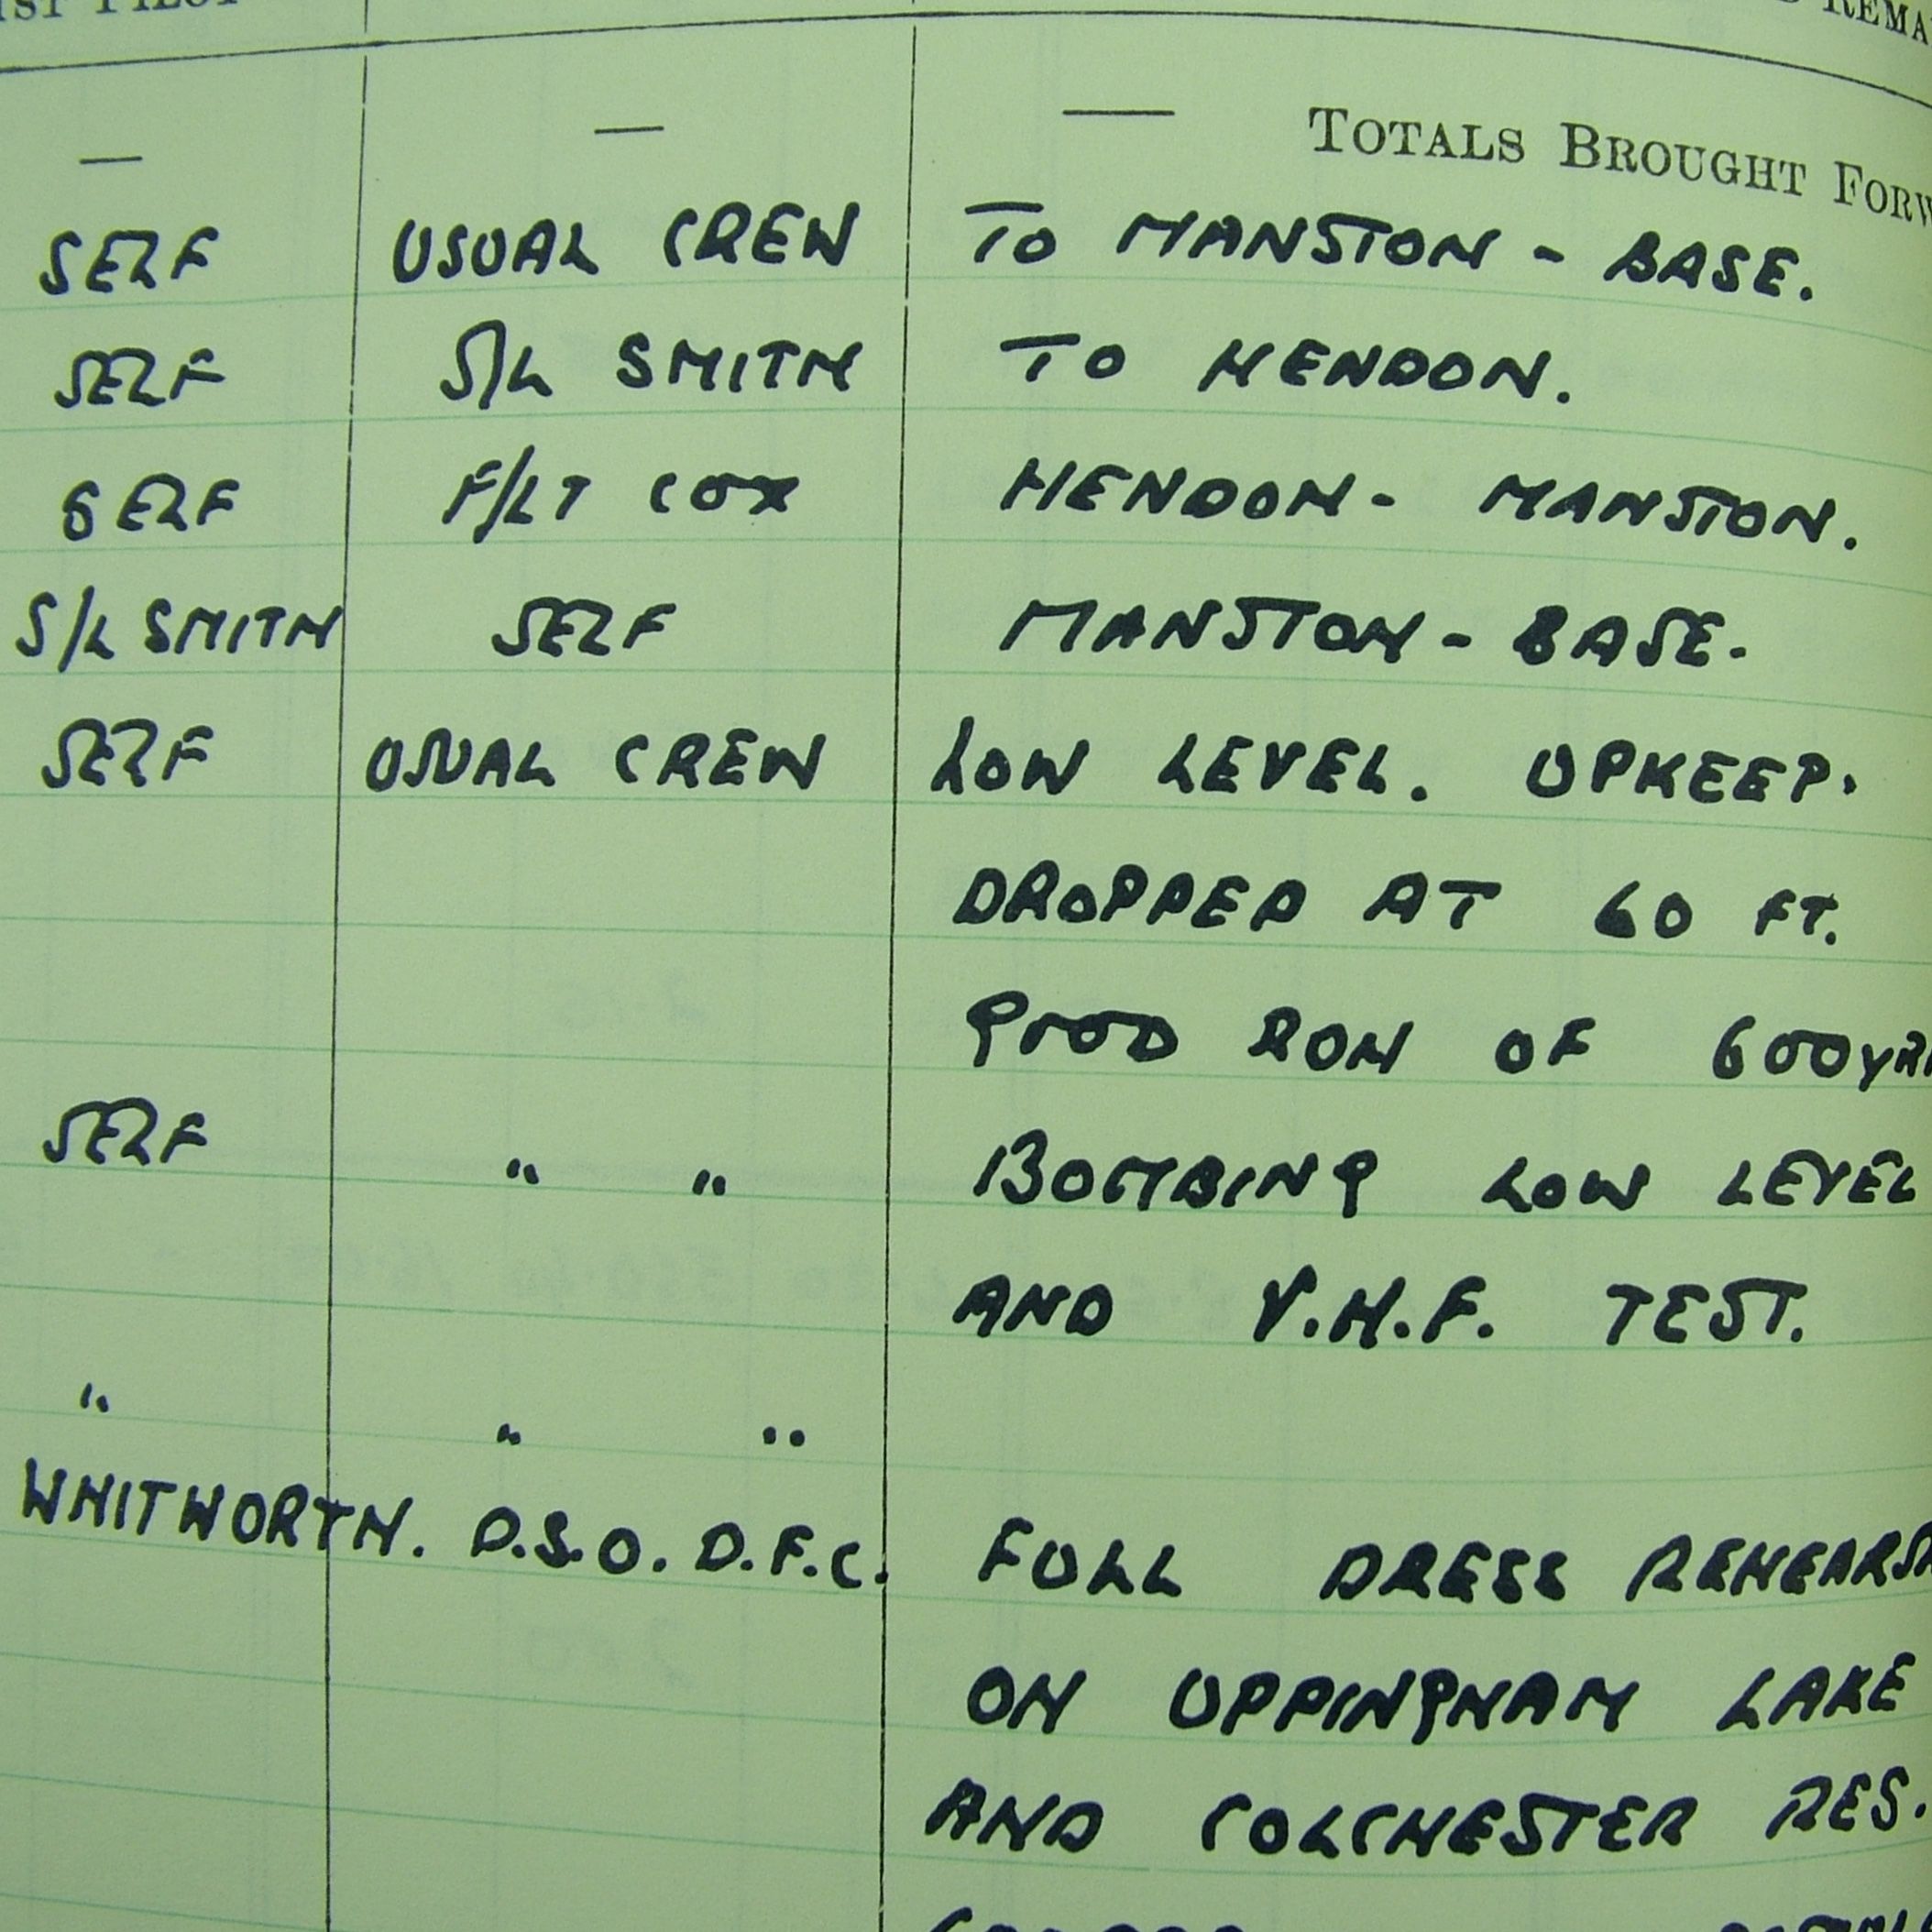 1ST PILOT REMA
— — — TOTALS BROUGHT FORW
SELF USUAL CREW TO MANSTON - BASE.
SELF S/L SMITH TO HENDON.
SELF F/LT COX HENDON - MANSTON.
S/L SMITH SELF MANSTON - BASE.
SELF USUAL CREW LOW LEVEL. UPKEEP.
DROPPED AT 60 FT.
GOOD RUN OF 600YR
SELF " " BOMBING LOW LEVEL
AND V.H.F. TEST.
" " "
WHITWORTH. D.S.O. D.F.C. FULL DRESS REHEARSA
ON UPPINGHAM LAKE
AND COLCHESTER RES.